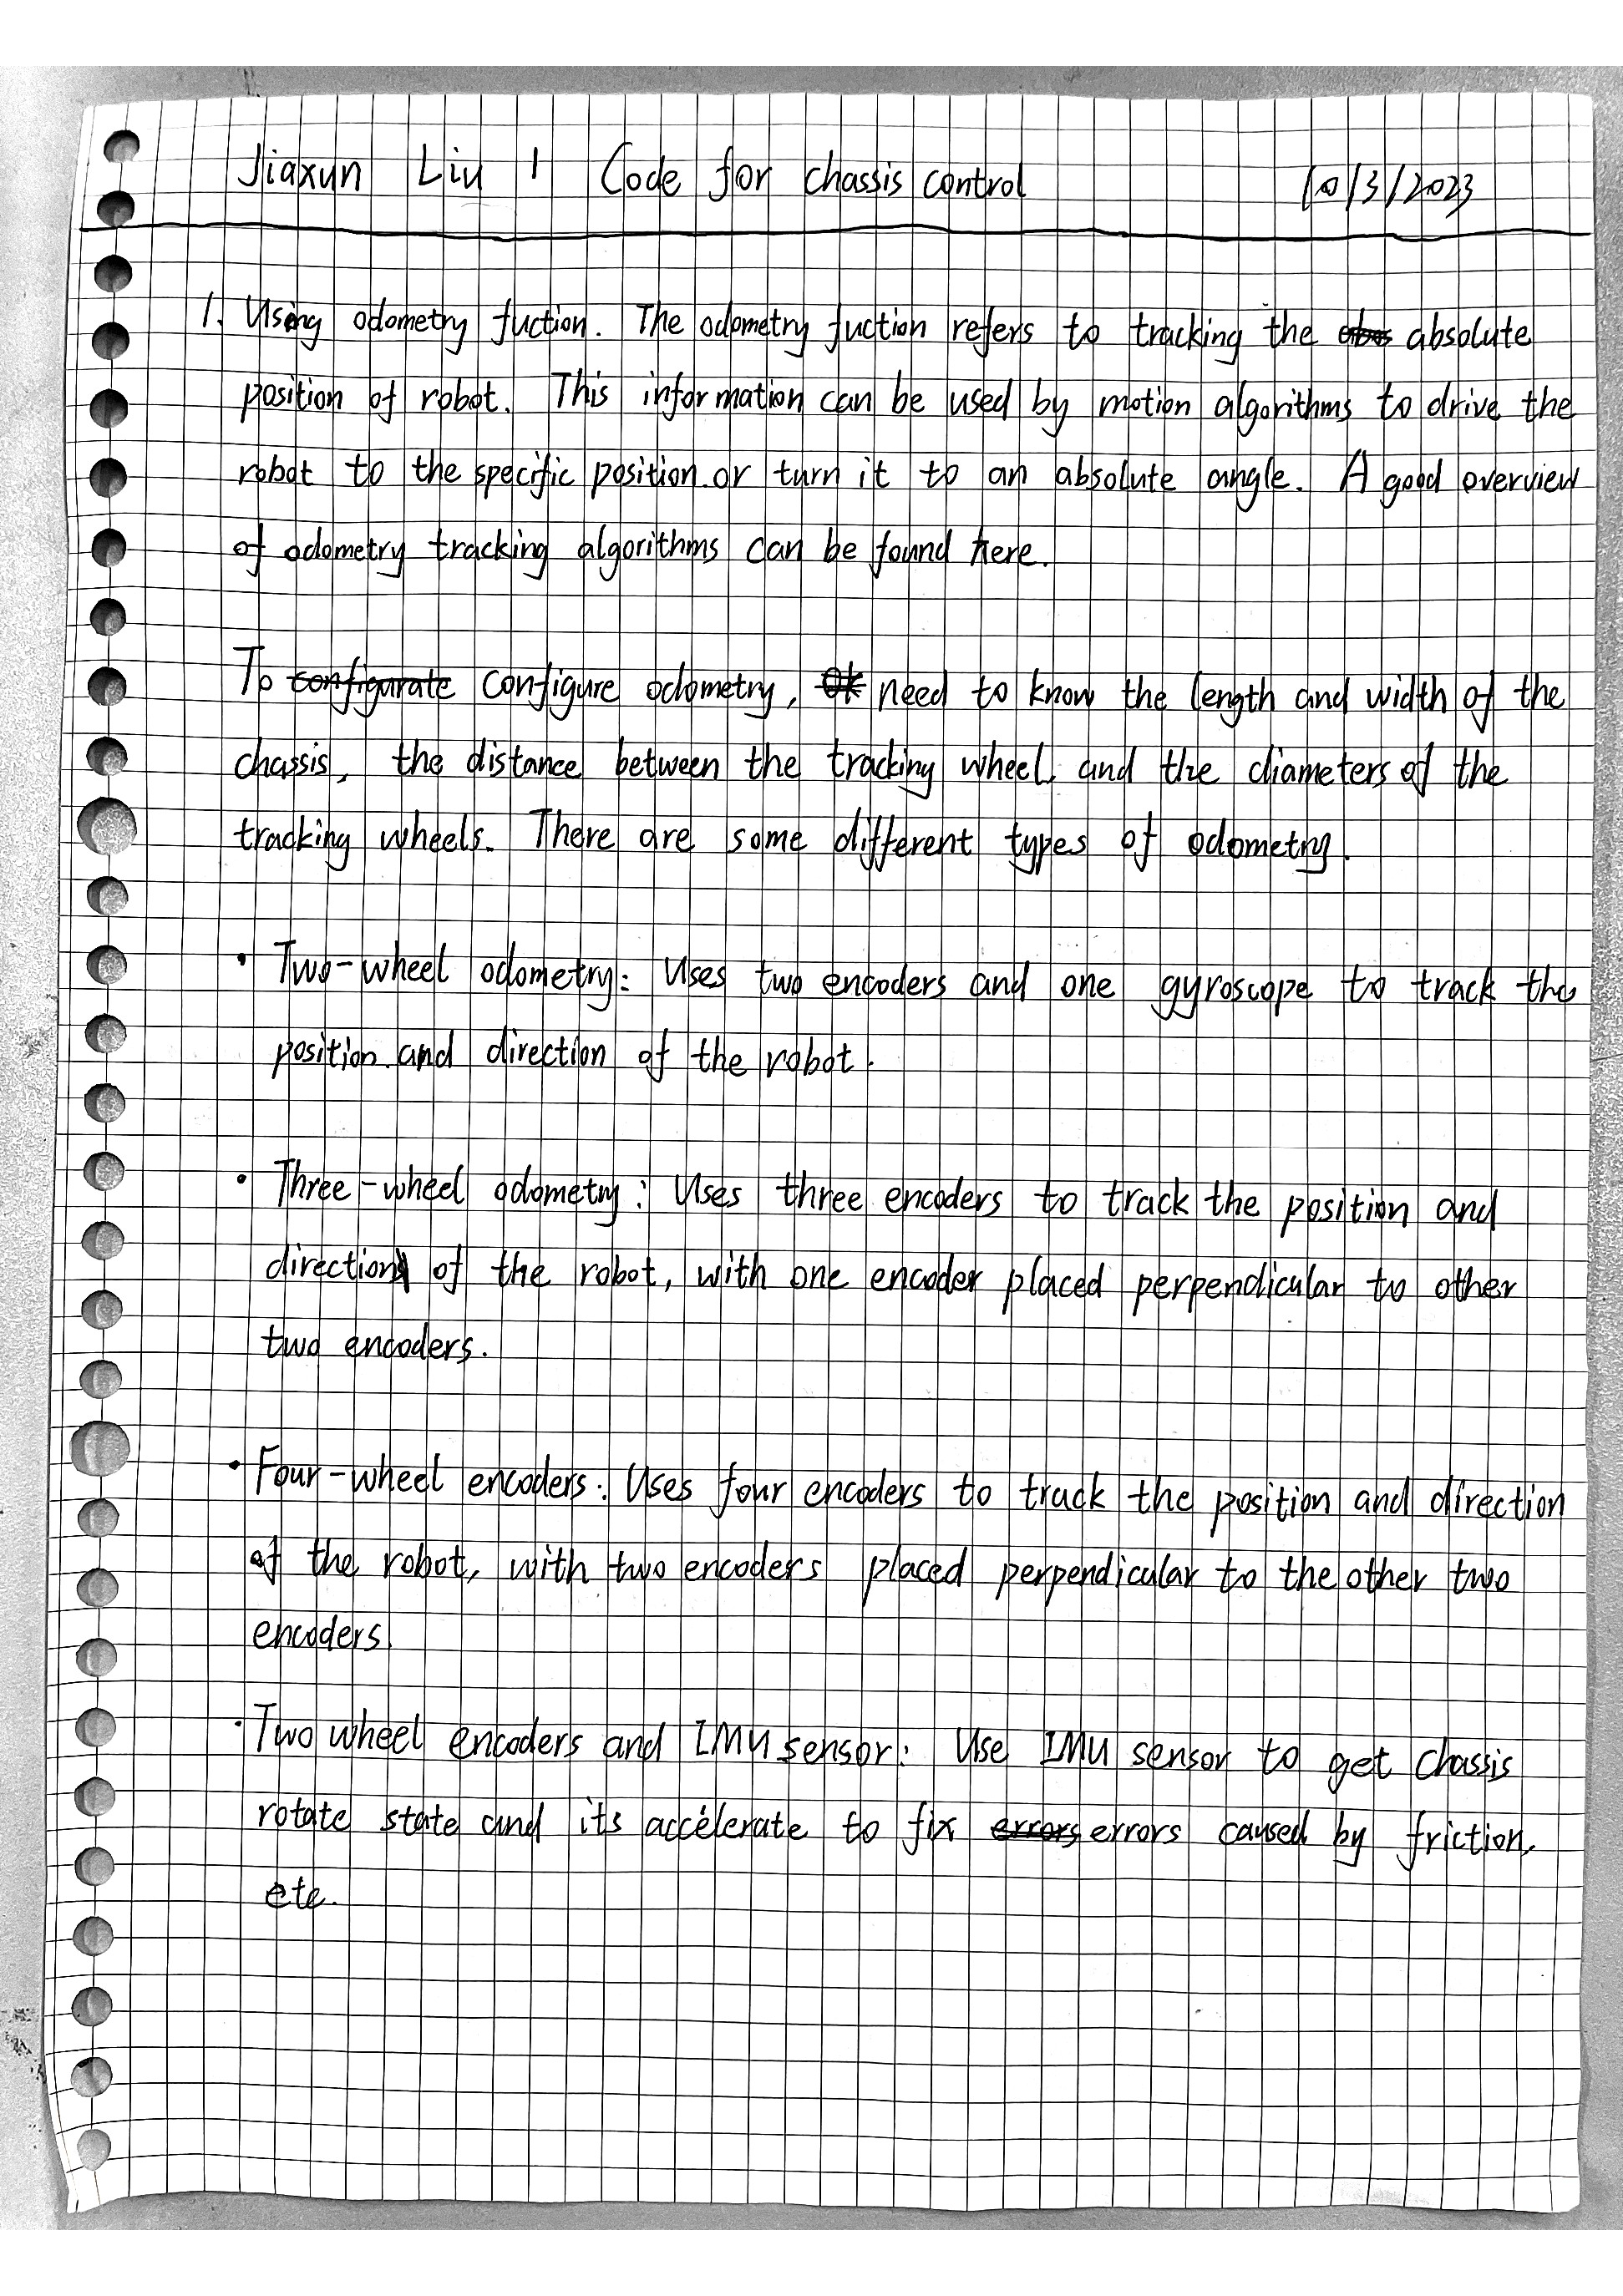 Jiaxun Liu 1 Code for chassis control 10/3/2023
1. Using odometry fuction. The odometry fuction refers to tracking the absolute
position of robot. This information can be used by motion algorithms to drive the
robot to the specific position or turn it to an absolute angle. A good overview
of odometry tracking algorithms can be found here.
To configurate configure odometry, need to know the length and width of the
chassis, the distance between the tracking wheel and the diameters of the
tracking wheels. There are some different types of odometry.
· Two-wheel odometry: Uses two encoders and one gyroscope to track the
position and direction of the robot.
· Three-wheel odometry: Uses three encoders to track the position and
direction of the robot, with one encoder placed perpendicular to other
two encoders.
· Four-wheel encoders: Uses four encoders to track the position and direction
of the robot, with two encoders placed perpendicular to the other two
encoders.
· Two wheel encoders and IMU sensor: Use IMU sensor to get chassis
rotate state and its accelerate to fix errors errors caused by friction,
etc.